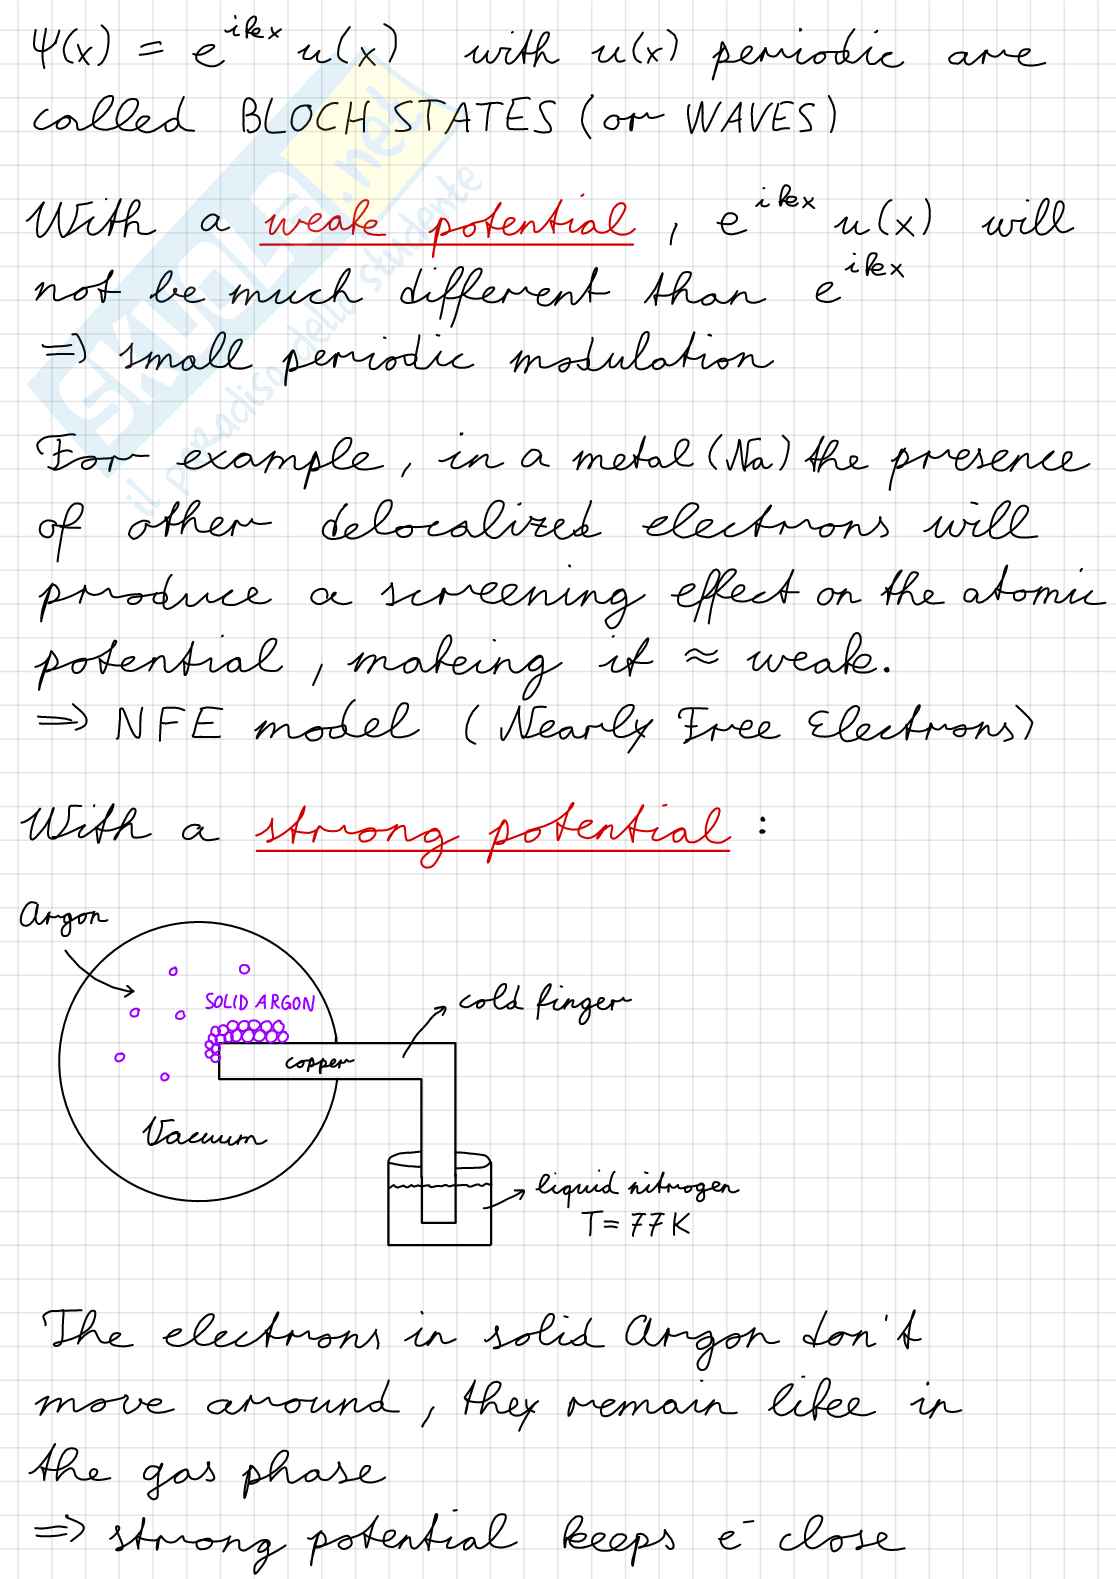 Ψ(x) = e^{ikx} u(x) with u(x) periodic are
called BLOCH STATES (or WAVES)
With a weak potential, e^{ikx} u(x) will
not be much different than e^{ikx}
=> small periodic modulation
For example, in a metal (Na) the presence
of other delocalized electrons will
produce a screening effect on the atomic
potential, making it ≈ weak.
=> NFE model (Nearly Free Electrons)
With a strong potential:
Argon
SOLID ARGON
cold finger
copper
Vacuum
liquid nitrogen
T = 77 K
The electrons in solid Argon don't
move around, they remain like in
the gas phase
=> strong potential keeps e⁻ close
SKUOLA.net
il paradiso dello studente